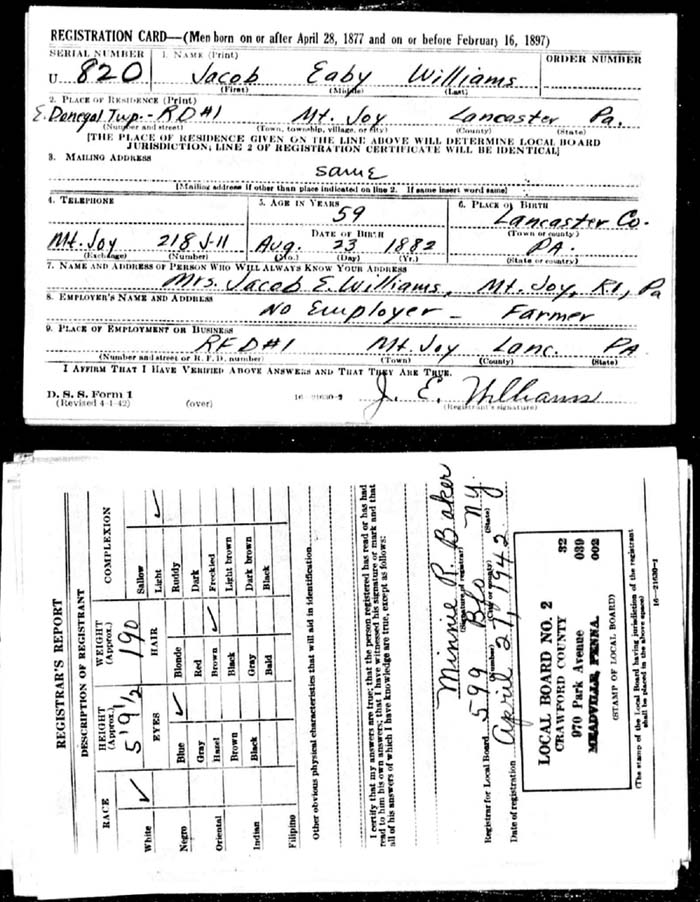 REGISTRATION CARD—(Men born on or after April 28, 1877 and on or before February 16, 1897)
SERIAL NUMBER 1. NAME (Print) ORDER NUMBER
U 820 Jacob Eaby Williams
(First) (Middle) (Last)
2. PLACE OF RESIDENCE (Print)
E. Donegal Twp.- RD#1 Mt. Joy Lancaster Pa.
(Number and street) (Town, township, village, or city) (County) (State)
[THE PLACE OF RESIDENCE GIVEN ON THE LINE ABOVE WILL DETERMINE LOCAL BOARD
JURISDICTION; LINE 2 OF REGISTRATION CERTIFICATE WILL BE IDENTICAL]
3. MAILING ADDRESS
same
[Mailing address if other than place indicated on line 2. If same insert word same]
4. TELEPHONE 5. AGE IN YEARS 6. PLACE OF BIRTH
59 Lancaster Co.
DATE OF BIRTH (Town or county)
Mt. Joy 218 J-11 Aug. 23 1882 PA.
(Exchange) (Number) (Mo.) (Day) (Yr.) (State or country)
7. NAME AND ADDRESS OF PERSON WHO WILL ALWAYS KNOW YOUR ADDRESS
Mrs. Jacob E. Williams, Mt. Joy, R.1, Pa
8. EMPLOYER'S NAME AND ADDRESS
No Employer - Farmer
9. PLACE OF EMPLOYMENT OR BUSINESS
RFD#1 Mt. Joy Lanc. PA
(Number and street or R. F. D. number) (Town) (County) (State)
I AFFIRM THAT I HAVE VERIFIED ABOVE ANSWERS AND THAT THEY ARE TRUE.
D. S. S. Form 1
(Revised 4-1-42) (over) 16—21630-2 J. E. Williams
(Registrant's signature)
REGISTRAR'S REPORT
DESCRIPTION OF REGISTRANT
RACE HEIGHT (Approx.) WEIGHT (Approx.) COMPLEXION
5' 9 1/2 190
White ✓ EYES HAIR Sallow
Light ✓
Negro Blue ✓ Blonde Ruddy
Gray Red Dark
Oriental Hazel Brown ✓ Freckled
Brown Black Light brown
Indian Black Gray Dark brown
Bald Black
Filipino
Other obvious physical characteristics that will aid in identification
I certify that my answers are true; that the person registered has read or has had
read to him his own answers; that I have witnessed his signature or mark and that
all of his answers of which I have knowledge are true, except as follows:
Minnie R. Baker
(Signature of registrar)
Registrar for Local Board 599 N.Y.
(Number) (City or county) (State)
Date of registration April 27, 1942
LOCAL BOARD NO. 2 32
CRAWFORD COUNTY 039
970 Park Avenue 002
MEADVILLE, PENNA.
(STAMP OF LOCAL BOARD)
(The stamp of the Local Board having jurisdiction of the registrant
shall be placed in the above space)
16—21630-1